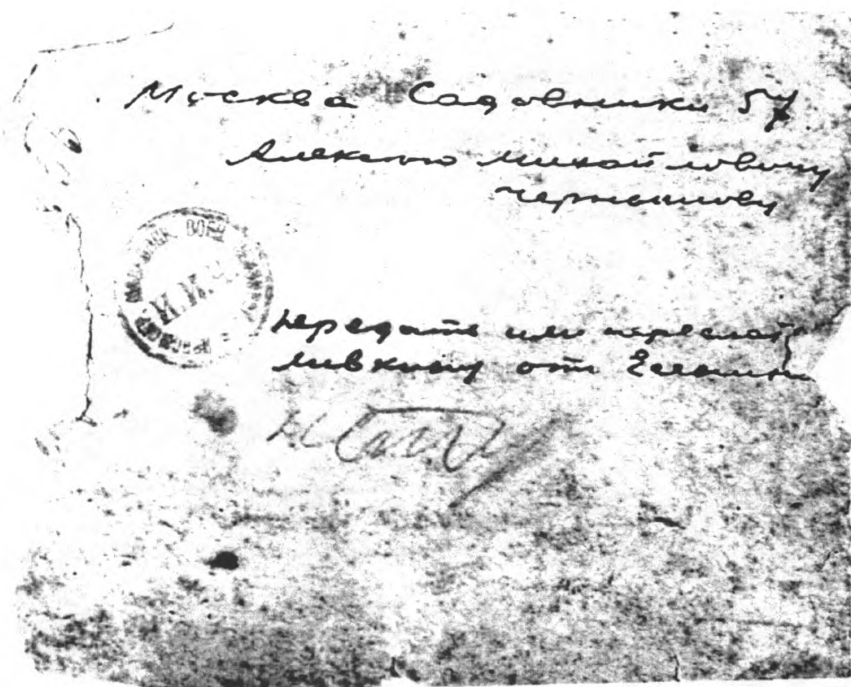 Москва Садовники 57
Алексею Михайловичу
Чернышову
передать или переслать
Ливкину от Есенина